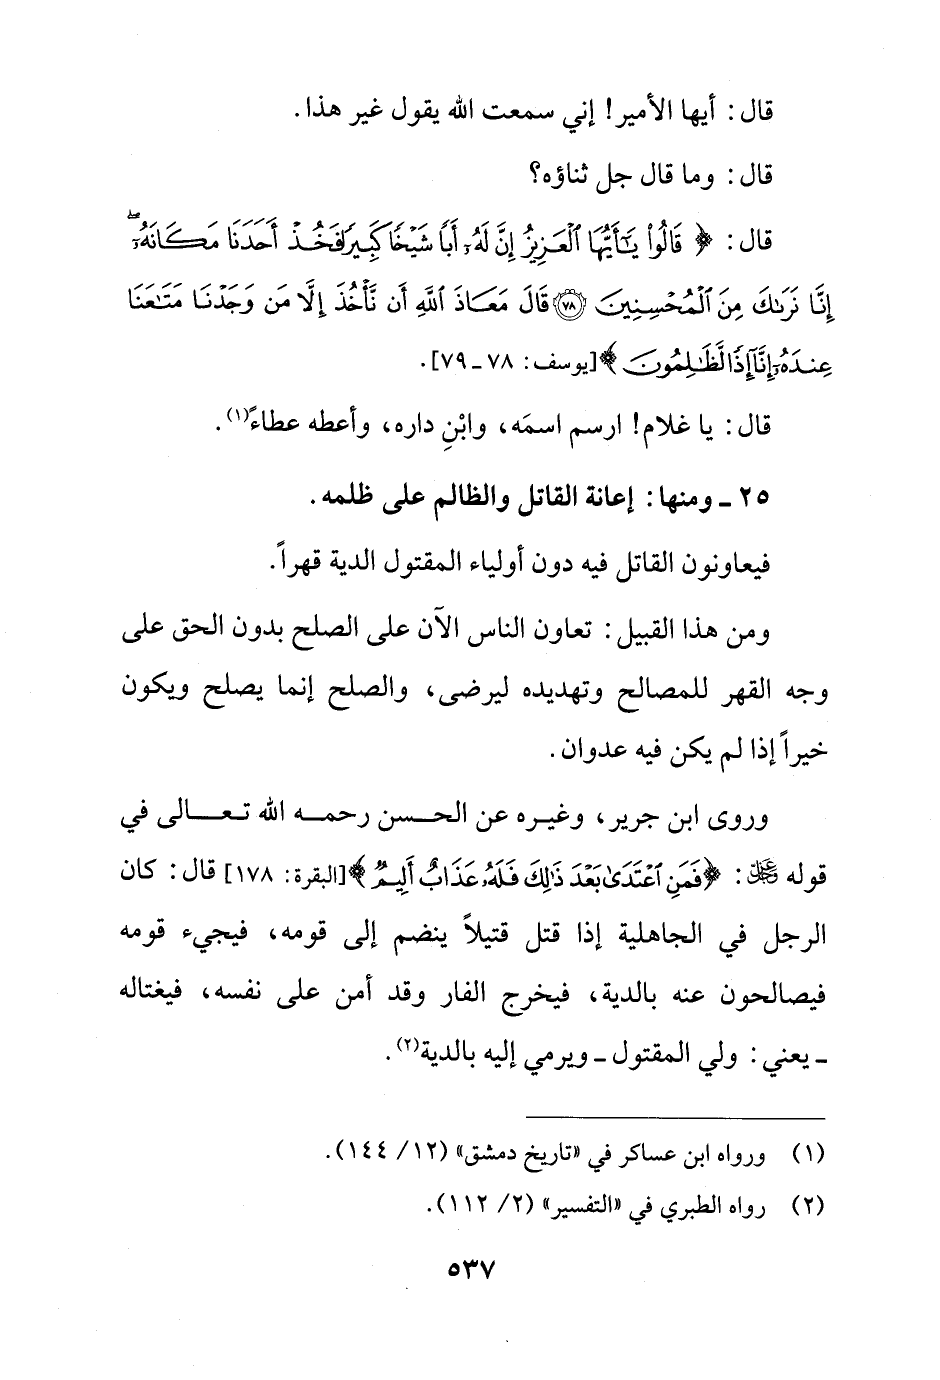 قال: أيها الأمير! إني سمعت الله يقول غير هذا.
قال: وما قال جل ثناؤه؟
قال: ﴿ قَالُوا۟ يَـٰٓأَيُّهَا ٱلْعَزِيزُ إِنَّ لَهُۥٓ أَبًا شَيْخًا كَبِيرًا فَخُذْ أَحَدَنَا مَكَانَهُۥٓ ۖ
إِنَّا نَرَىٰكَ مِنَ ٱلْمُحْسِنِينَ ﴿٧٨﴾ قَالَ مَعَاذَ ٱللَّهِ أَن نَّأْخُذَ إِلَّا مَن وَجَدْنَا مَتَـٰعَنَا
عِندَهُۥٓ إِنَّآ إِذًا لَّظَـٰلِمُونَ ﴾ [يوسف: ٧٨ ـ ٧٩].
قال: يا غلام! ارسم اسمَه، وابْنِ داره، وأعطه عطاءً(١).
٢٥ ـ ومنها: إعانة القاتل والظالم على ظلمه.
فيعاونون القاتل فيه دون أولياء المقتول الدية قهراً.
ومن هذا القبيل: تعاون الناس الآن على الصلح بدون الحق على
وجه القهر للمصالح وتهديده ليرضى، والصلح إنما يصلح ويكون
خيراً إذا لم يكن فيه عدوان.
وروى ابن جرير، وغيره عن الحسن رحمه الله تعالى في
قوله ﷻ: ﴿فَمَنِ ٱعْتَدَىٰ بَعْدَ ذَٰلِكَ فَلَهُۥ عَذَابٌ أَلِيمٌ ﴾ [البقرة: ١٧٨] قال: كان
الرجل في الجاهلية إذا قتل قتيلاً ينضم إلى قومه، فيجيء قومه
فيصالحون عنه بالدية، فيخرج الفار وقد أمن على نفسه، فيغتاله
ـ يعني: ولي المقتول ـ ويرمي إليه بالدية(٢).
(١) ورواه ابن عساكر في «تاريخ دمشق» (١٢/ ١٤٤).
(٢) رواه الطبري في «التفسير» (٢/ ١١٢).
٥٣٧